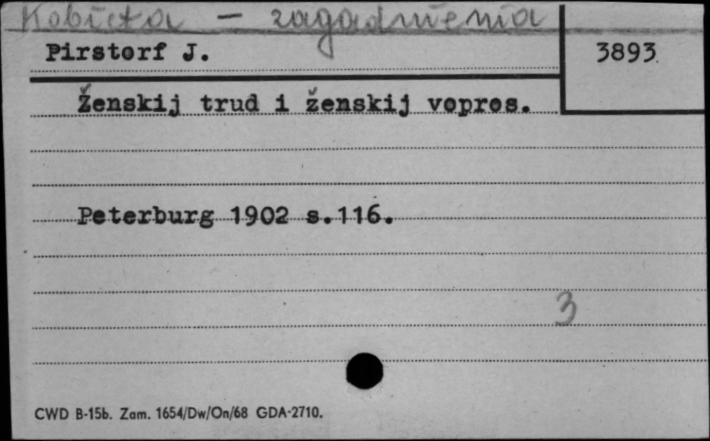 Kobieta - zagadnienia
Pirstorf J.
3893
Ženskij trud i ženskij vopros.
Peterburg 1902 s.116.
3
CWD B-15b. Zam. 1654/Dw/On/68 GDA-2710.